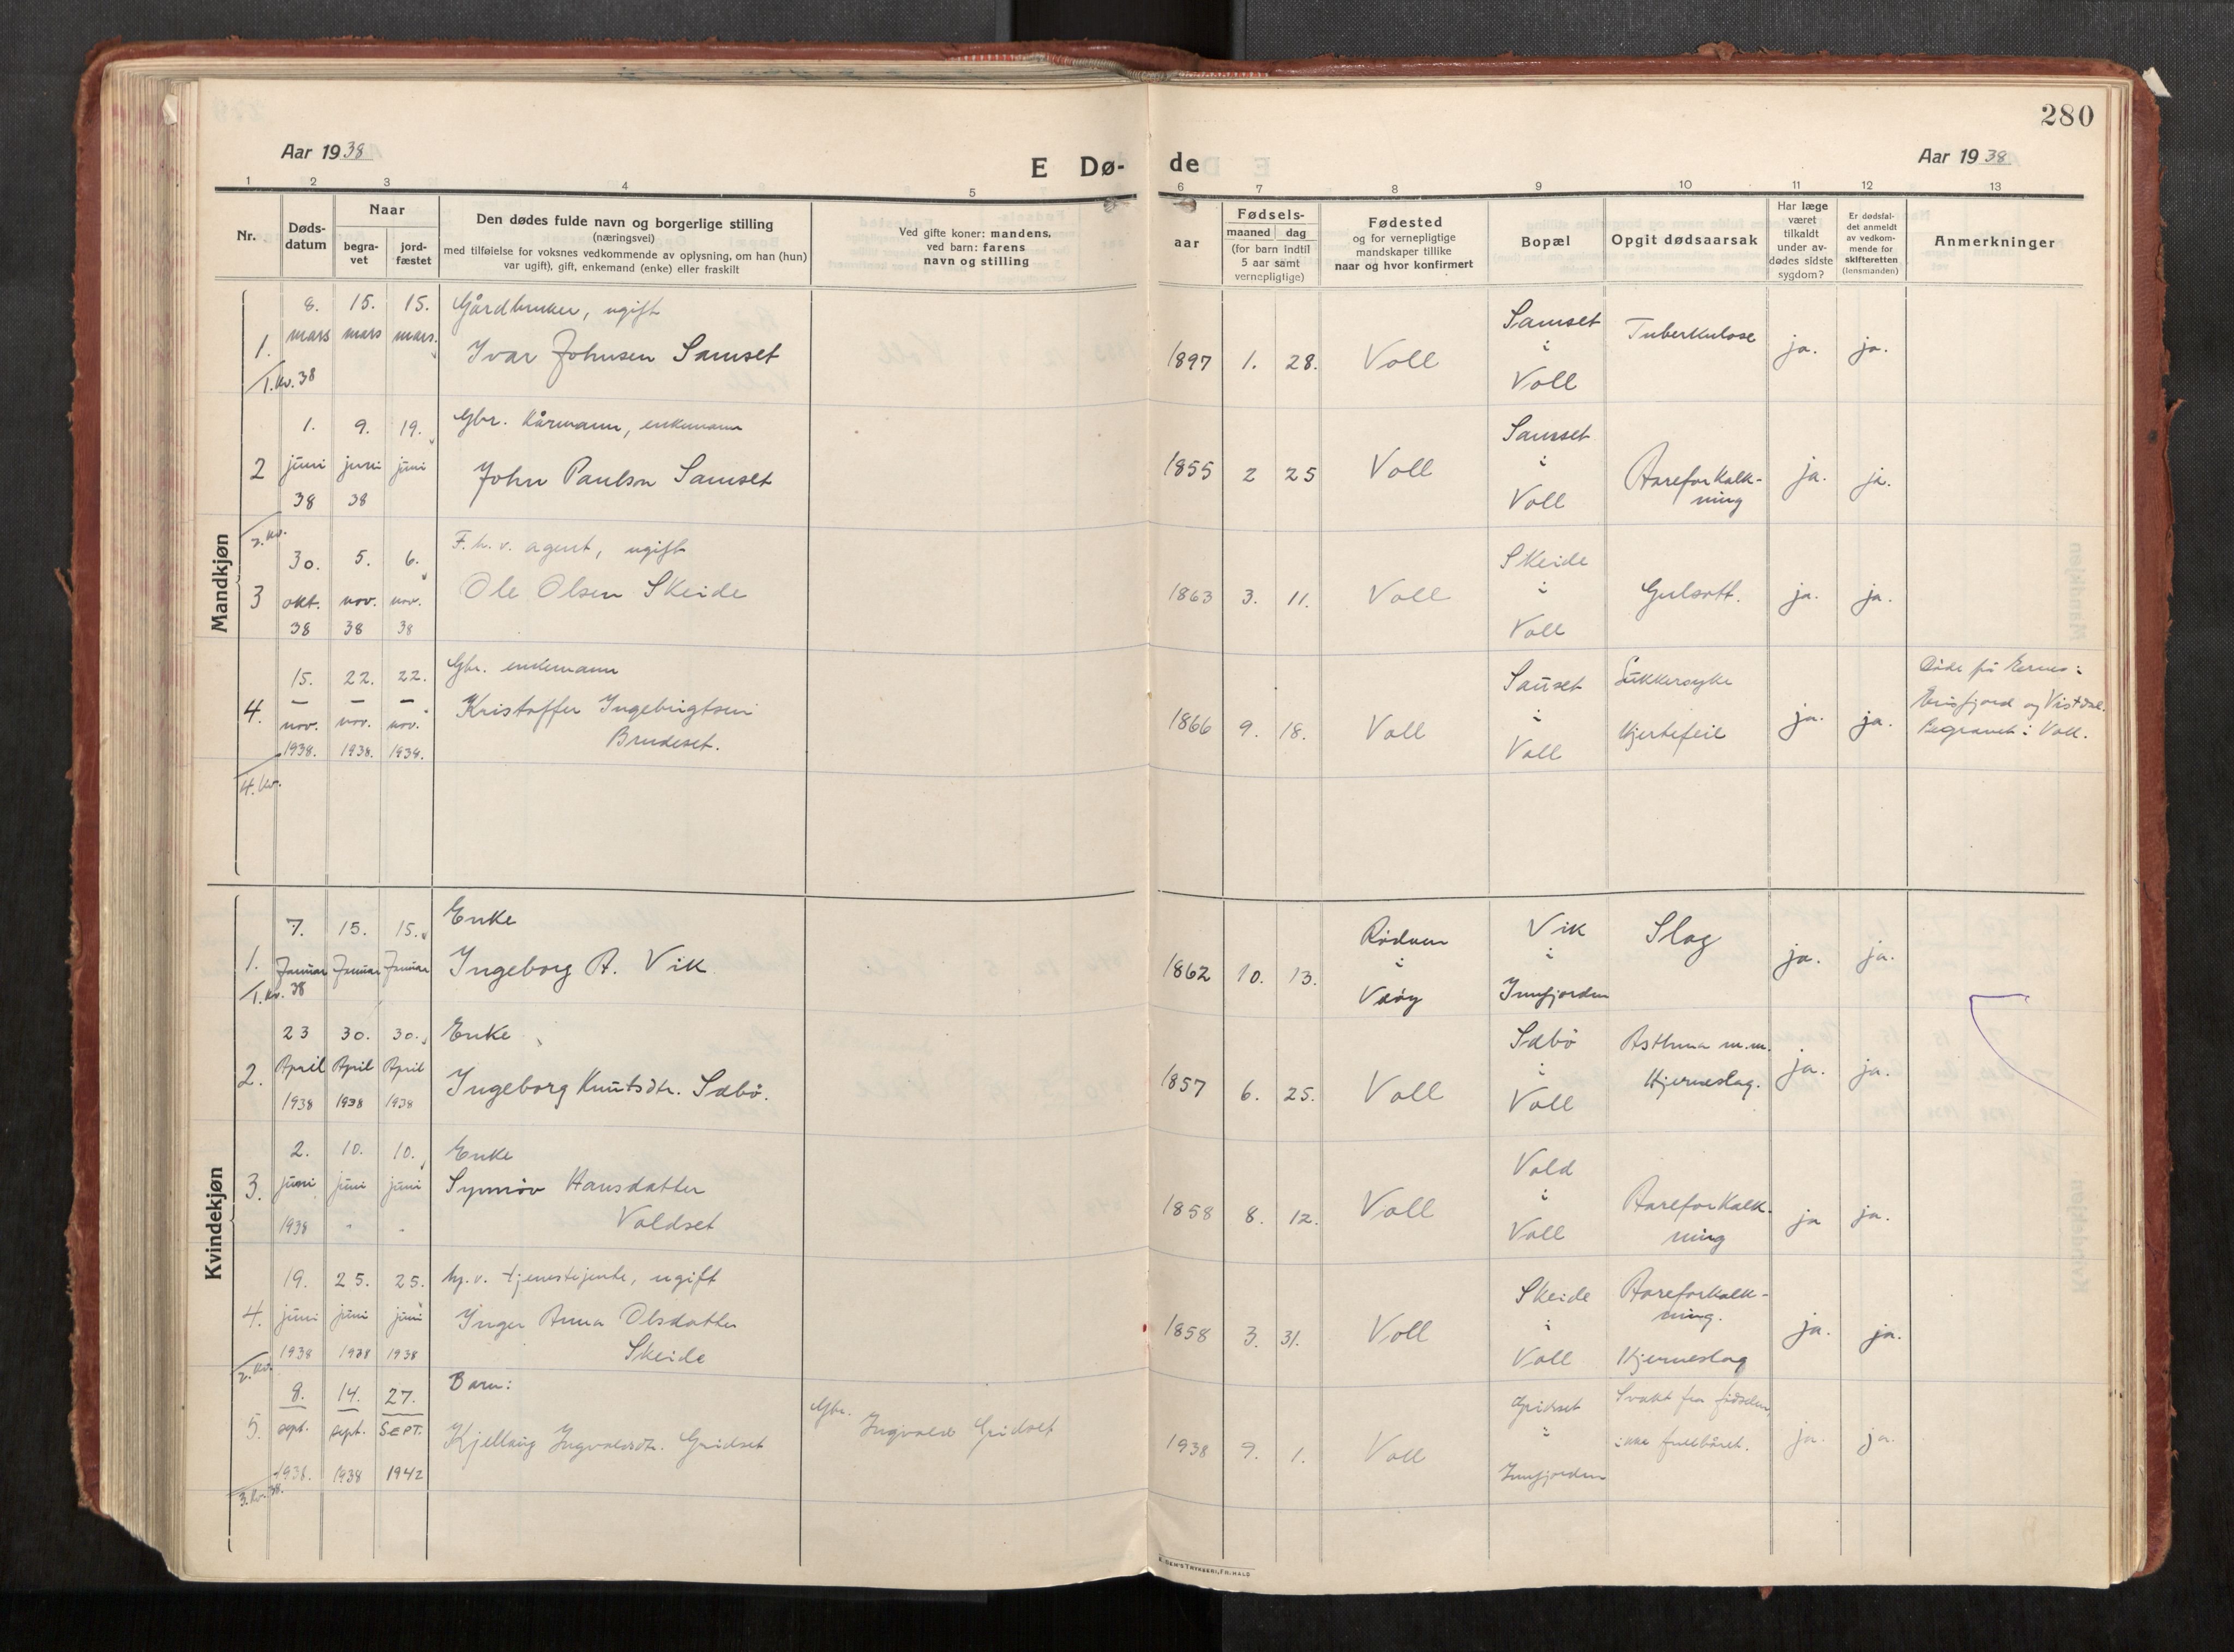 280
Aar 1938
E Dø-
de
Aar 1938
1 2 3 4 5 6 7 8 9 10 11 12 13
Nr.
Døds-
datum
Naar
begra-
vet
jord-
fæstet
Den dødes fulde navn og borgerlige stilling
(næringsvei)
med tilføielse for voksnes vedkommende av oplysning, om han (hun)
var ugift), gift, enkemand (enke) eller fraskilt
Ved gifte koner: mandens,
ved barn: farens
navn og stilling
Fødsels-
aar
maaned dag
(for barn indtil
5 aar samt
vernepligtige)
Fødested
og for vernepligtige
mandskaper tillike
naar og hvor konfirmert
Bopæl
Opgit dødsaarsak
Har læge
været
tilkaldt
under av-
dødes sidste
sygdom?
Er dødsfal-
det anmeldt
av vedkom-
mende for
skifteretten
(lensmanden)
Anmerkninger
Mandkjøn
1.
8. 15. 15.
mars mars mars.
1. kv. 38
Gårdbruker, ugift
Ivar Johnsen Samset
1897 1. 28. Voll
Samset
i
Voll
Tuberkulose
ja. ja.
2
1. 9. 19.
juni juni juni
38 38
2. kv.
Gbr. Kårmann, enkemann
John Paulson Samset
1855 2 25 Voll
Samset
i
Voll
Aareforkalk-
ning
ja. ja.
3
30. 5. 6.
okt. nov. nov.
38 38 38
F. h. v. agent, ugift
Ole Olsen Skeide
1863 3. 11. Voll
Skeide
i
Voll
Gulsott.
ja. ja.
4.
15. 22. 22.
nov. nov. nov.
1938. 1938. 1938.
4. kv.
Gbr. enkemann
Kristoffer Ingebrigtsen
Brudeset.
1866 9. 18. Voll
i
Voll
Sukkersyke
Hjertefeil
ja. ja.
Døde på
Eirisfjord og Vistdal.
Begravet i Voll.
Kvindekjøn
1.
7. 15. 15.
Januar Januar Januar
1. kv. 38
Enke
Ingeborg A. Vik
1862 10. 13.
Rødven
i
Veøy
Vik
i
Innfjorden
Slag
ja. ja.
2.
23 30. 30.
April April April
1938 1938 1938
Enke
Ingeborg Knutsdtr. Sæbø.
1857 6. 25. Voll
Sæbø
i
Voll
Asthma m.m.
Hjerneslag.
ja. ja.
3.
2. 10. 10.
juni juni juni
1938 " "
Enke
Synnøv Hansdatter
Voldset
1858 8. 12. Voll
Vold
i
Voll
Aareforkalk-
ning
ja ja.
4.
19. 25. 25.
juni juni juni
1938 1938 1938
2. kv.
hj. v. tjenestejente, ugift
Inger Anna Olsdatter
Skeide
1858 3. 31. Voll
Skeide
i
Voll
Aareforkalk-
ning.
Hjerneslag
ja. ja.
5.
8. 14. 27.
sept. sept. SEPT.
1938. 1938 1942
3. kv. 38.
Barn:
Kjellaug Ingvaldsdtr. Gridset
Gbr.
Ingvald Gridset
1938 9. 1. Voll
Gridset
i
Innfjorden
Svakt fra fødselen,
ikke fullbåret.
ja. ja.